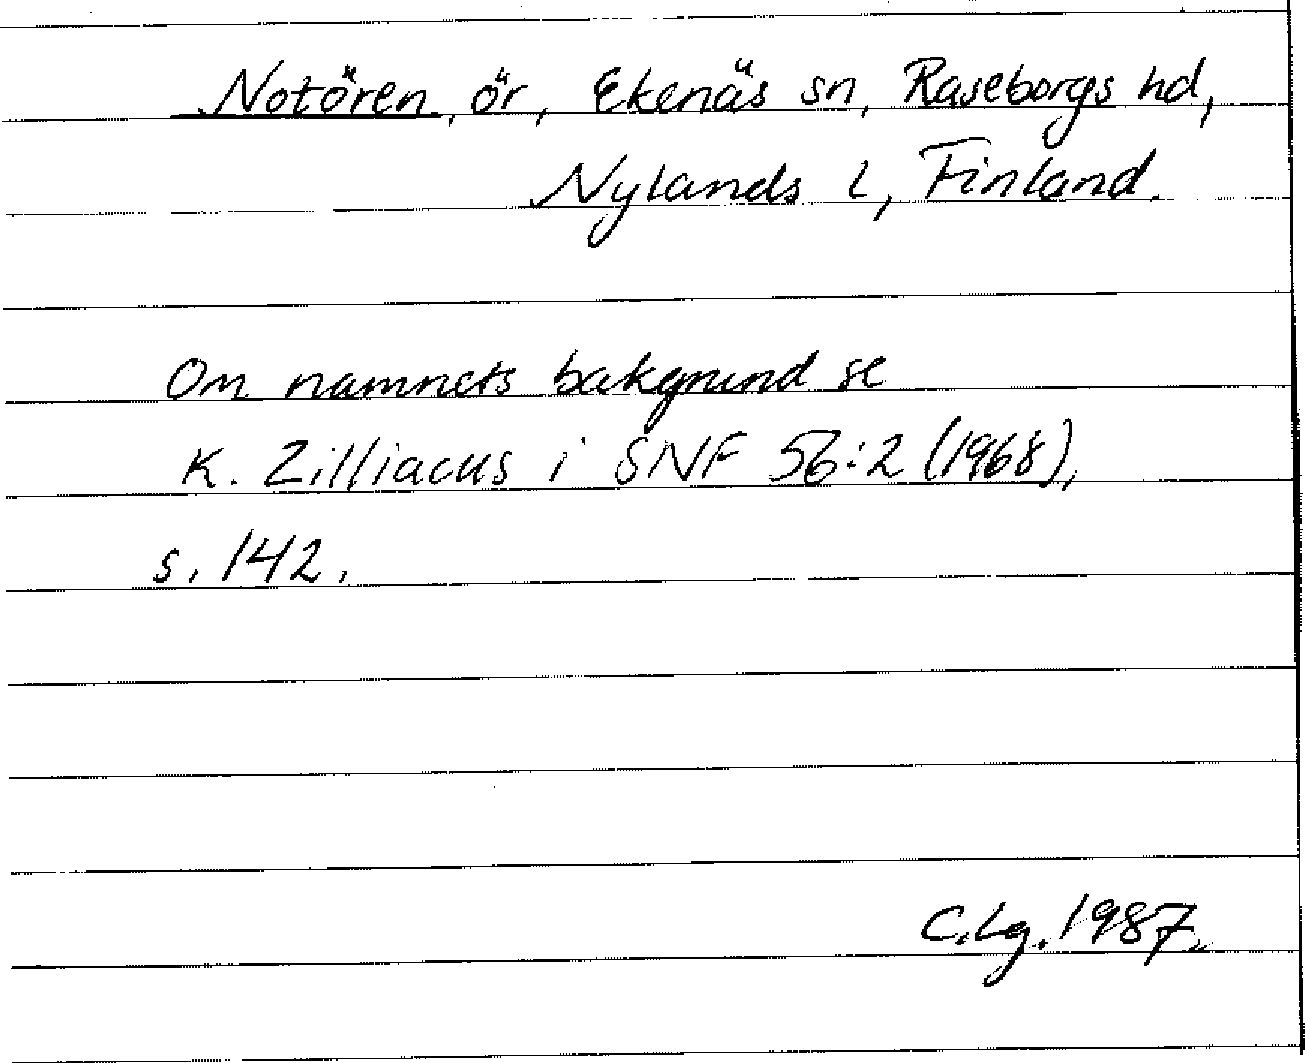 Notören, ör, Ekenäs sn, Raseborgs hd,
Nylands l, Finland.
Om namnets bakgrund se
K. Zilliacus i SNF 56:2 (1968),
s. 142.
C.Lg. 1987.